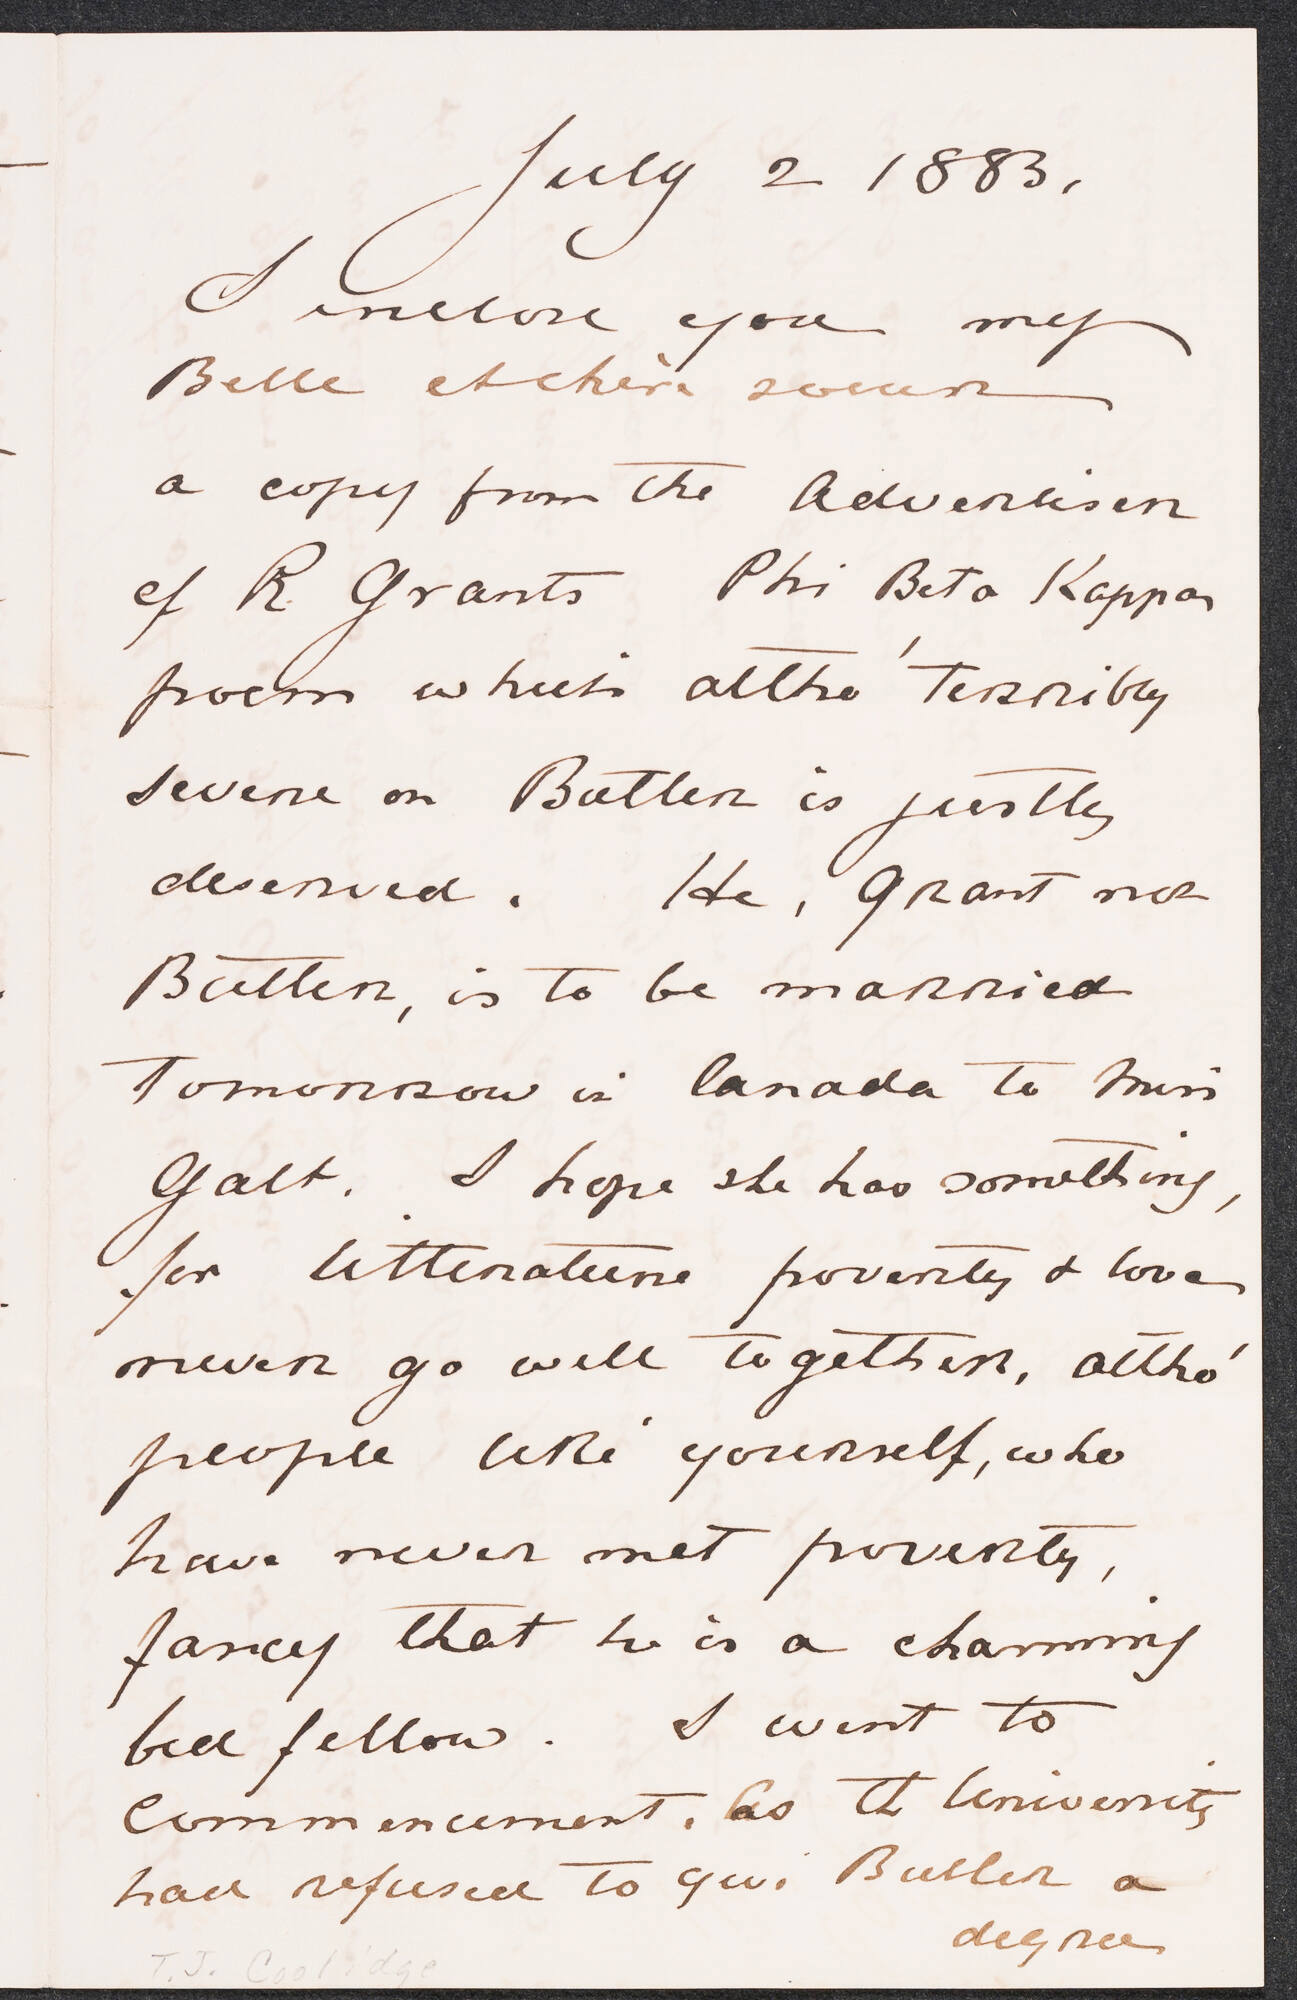 July 2 1883.
I inclose you my
Belle et chère soeur
a copy from the Advertiser
of R. Grants Phi Beta Kappa
poem which altho' terribly
severe on Butler is justly
deserved. He, Grant not
Butler, is to be married
tomorrow in Canada to Miss
Galt. I hope she has something,
for litterature poverty & love
never go well together, altho'
people like yourself, who
have never met poverty,
fancy that he is a charming
bed fellow. I went to
Commencement. As the University
had refused to give Butler a
degree
T.J. Coolidge